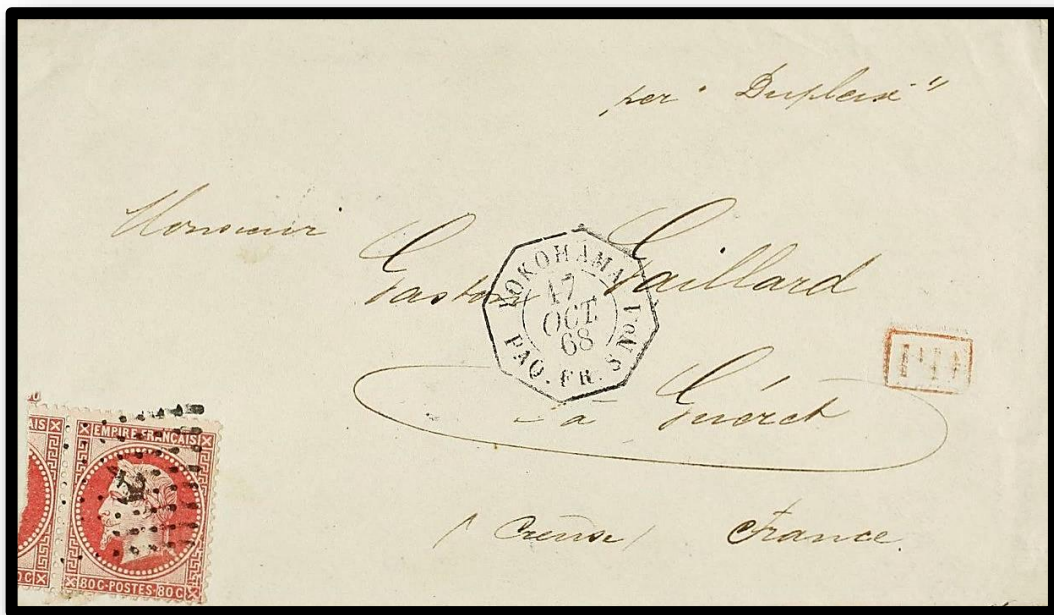 per "Dupleix"
Monsieur
Gaston Gaillard
YOKOHAMA
17
OCT.
68
PAQ. FR. S No 1
PD
à Guéret
(Creuse) France.
EMPIRE FRANÇAIS
80 C-POSTES-80 C
AIS
0 C